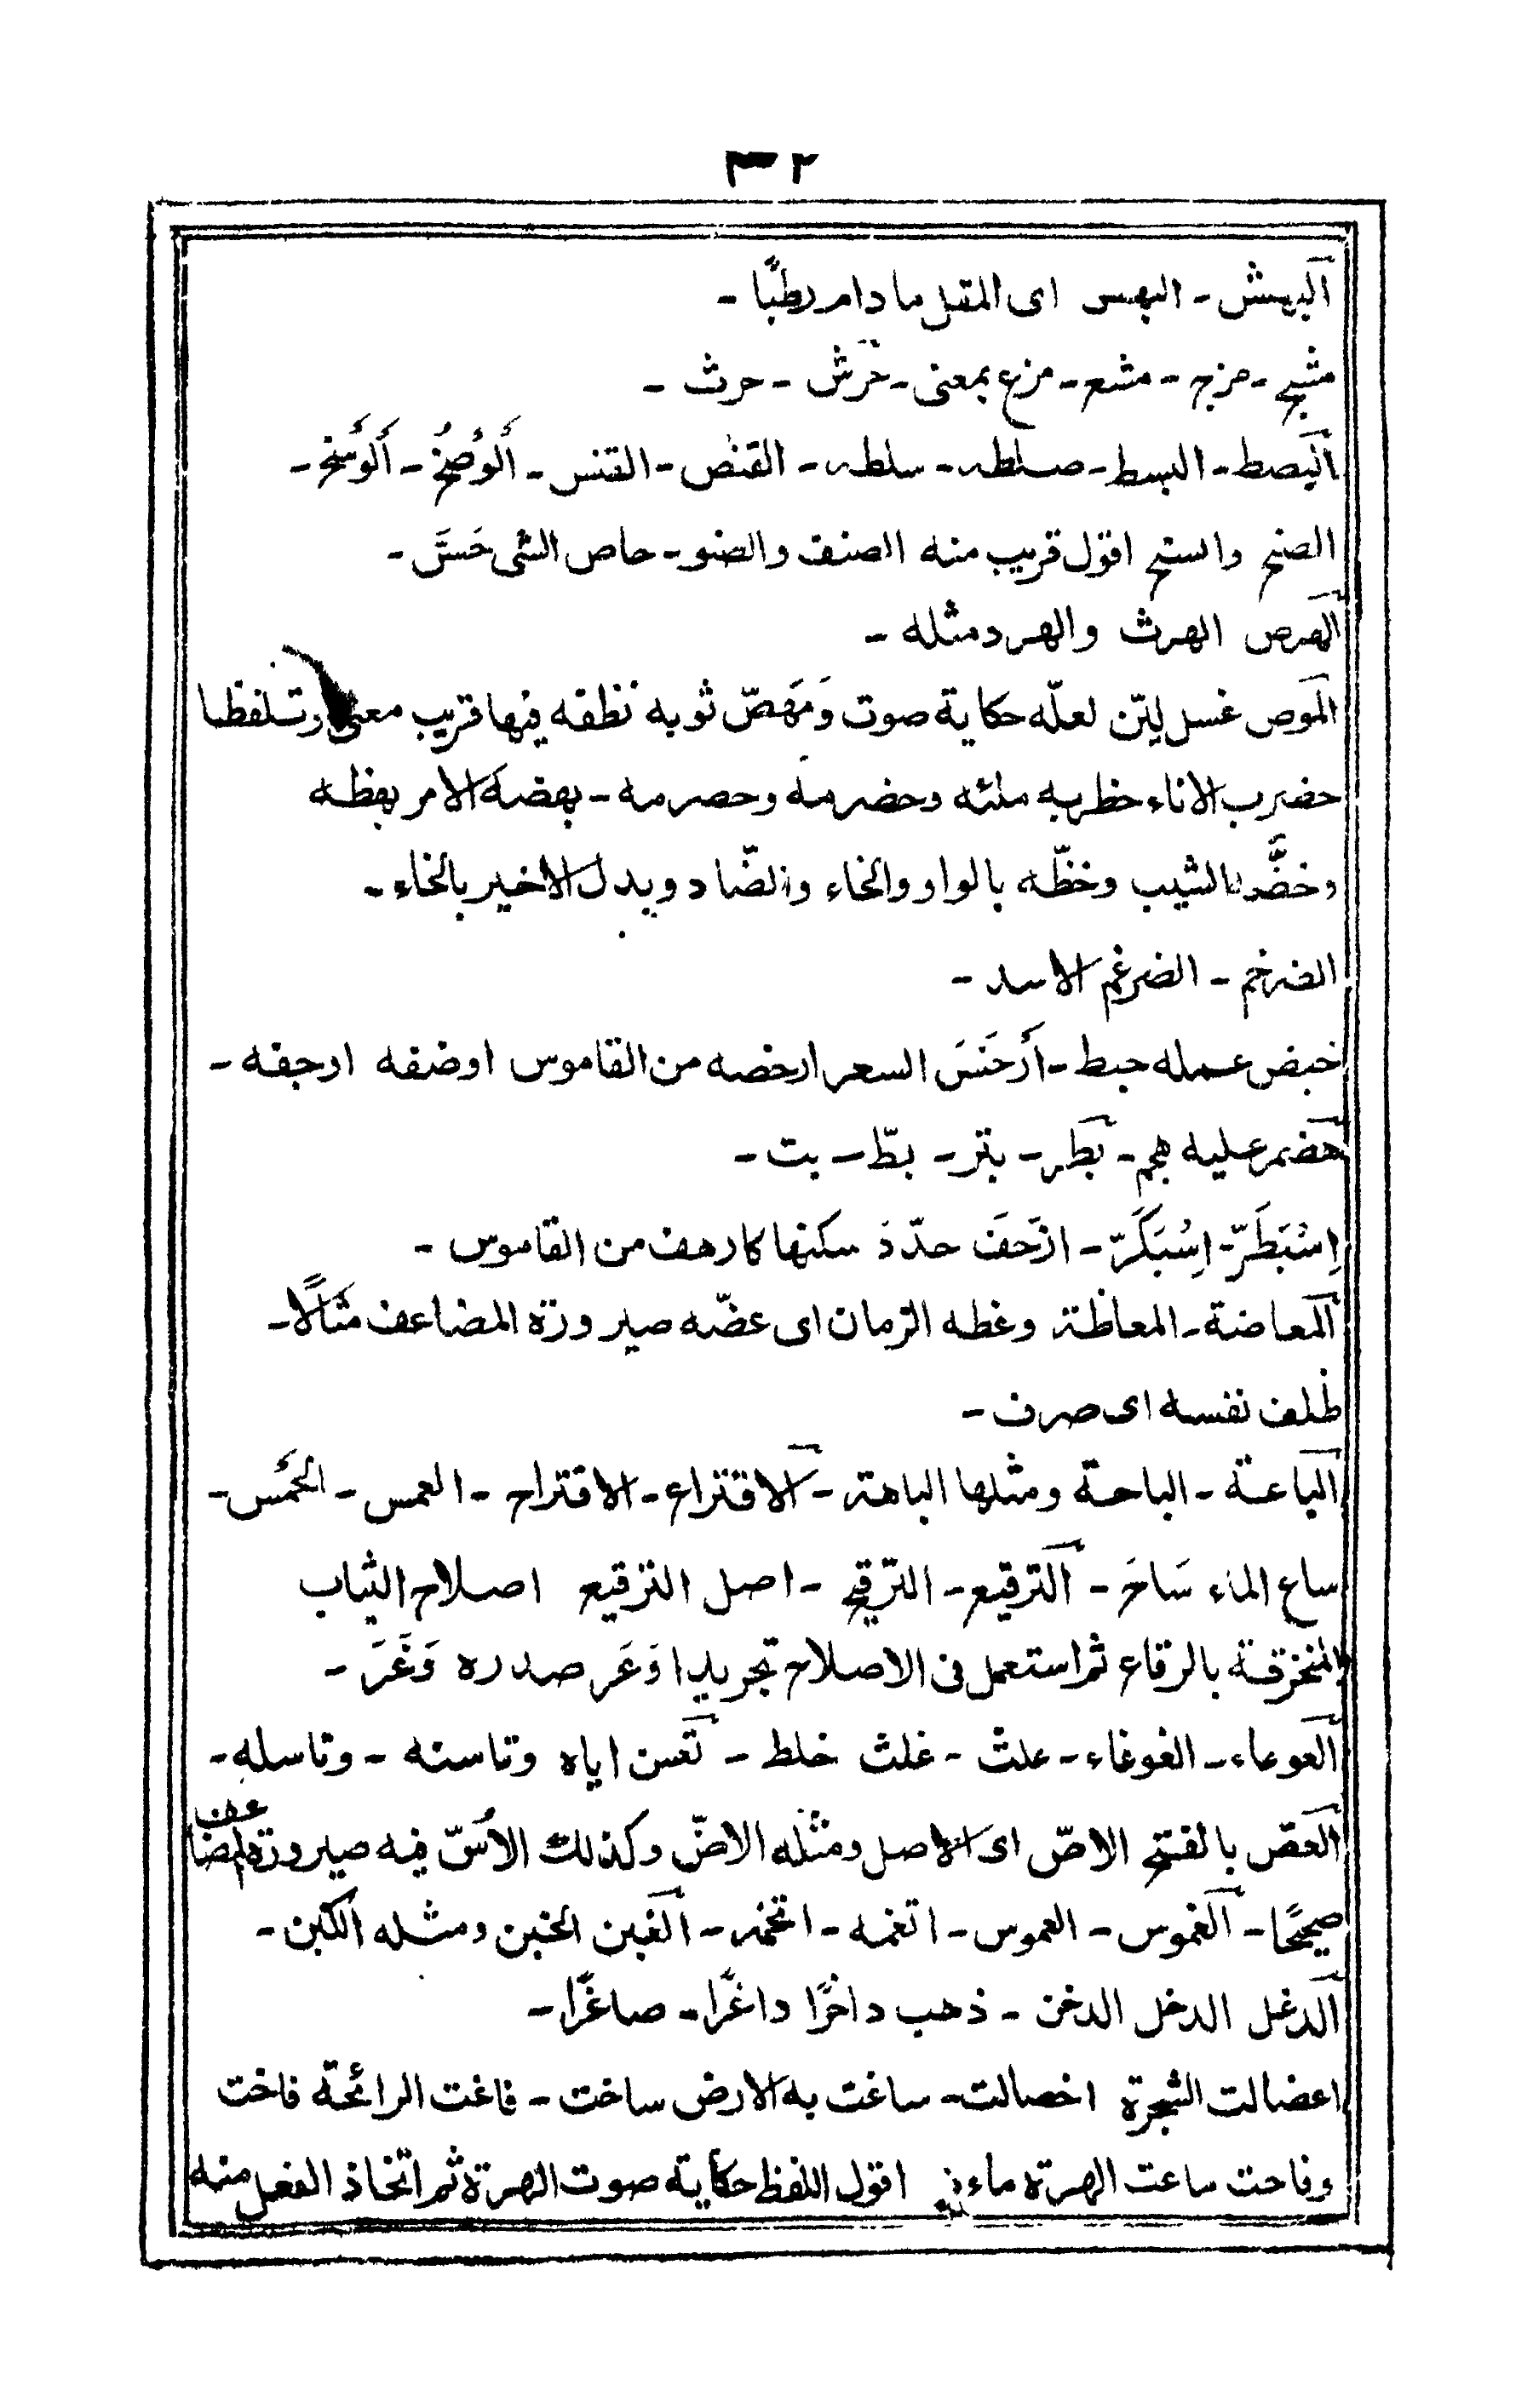 ٣٢
البهش - البهس اى المقل ما دام رطبًا -
مشج - مزج - مشع - مزع بمعنى - خرش - حرث -
البصط - البسط - صلطه - سلطه - القنص - القنس - أَلوُصُخ - أَلوُسَخ -
الصنخ والسنخ اقول قريب منه الصنف والصنو - حاص الشى حَسَّ -
الهرص الهرث والهرد مثله -
الموص غسل ليّن لعلّه حكاية صوت وَمَهَصّ ثوبه نظفه فيها قريب معنى وتلفظا
حضرب الاناء حظربه ملئه وحضرمه وحصرمه - بهضه الامر بهظه
وخضَّه الشيب وخظّه بالواو والخاء والضّاد وبدل الاخير بالخاء -
الضرخم - الضرغم الاسد -
خبض عمله حبط - أَرخَسَ السعر ارخصه من القاموس اوضفه اوجفه -
هضم عليه هجم - بطر - بتر - بطّ - بت -
اِسْبَطَرّ - اِسْبَكَرّ - ازحَفَ حدّد سكنها كارهف من القاموس -
المعاضة - المعاظة وغطه الزمان اى عضّه صيرورة المضاعف مثالًا -
ظلف نفسه اى صرف -
الباعة - الباحة ومثلها الباهة - الاقتراع - الاقتراح - العمس - الحَمس -
ساع الماء سَاحَ - الترقيع - الترقيح - اصل الترقيع اصلاح الثياب
المنخرقة بالرقاع ثم استعمل فى الاصلاح تجريدا وَعَر صدره وَغَرَ -
العوعاء - الغوغاء - علث - غلث خلط - تعسن اياه وتاسنه - وتاسله -
العقص بالفتح الاصّ اى الاصل ومثله الاضّ وكذلك الاُسّ فيه صيرورة المضاعف
صحيحًا - الغموس - العموس - اتغمه - اتخمه - الغبن الخبن ومثله الكبن -
الدغل الدخل الدخن - ذهب داخرًا داغرًا - صاغرًا -
اعضالت الشجرة اخصالت - ساغت به الارض ساخت - فاغت الرائحة فاخت
وفاحت ماعت الهرة ماءت اقول اللفظ حكاية صوت الهرة ثم اتخاذ الفعل منه